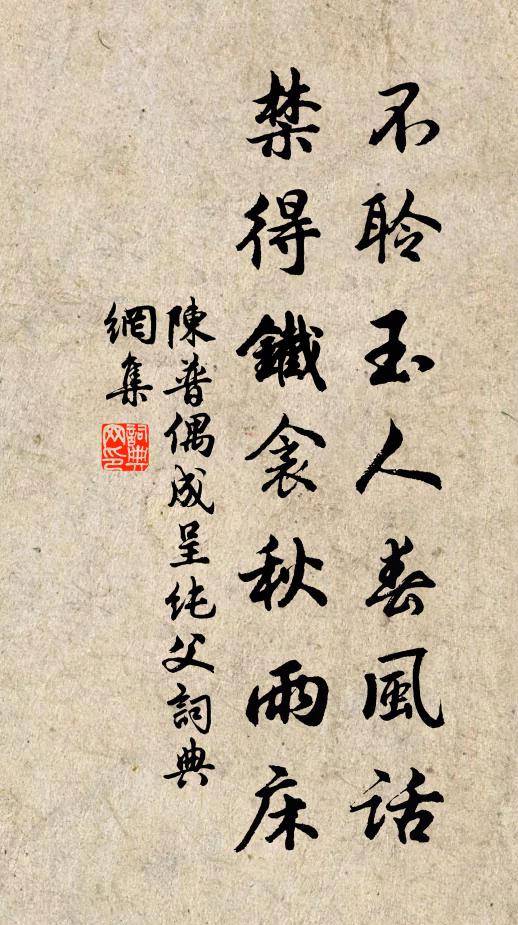 不聆玉人春風話
禁得鐵衾秋雨床
陳普偶成呈純父詞典
網集
詞典
网印